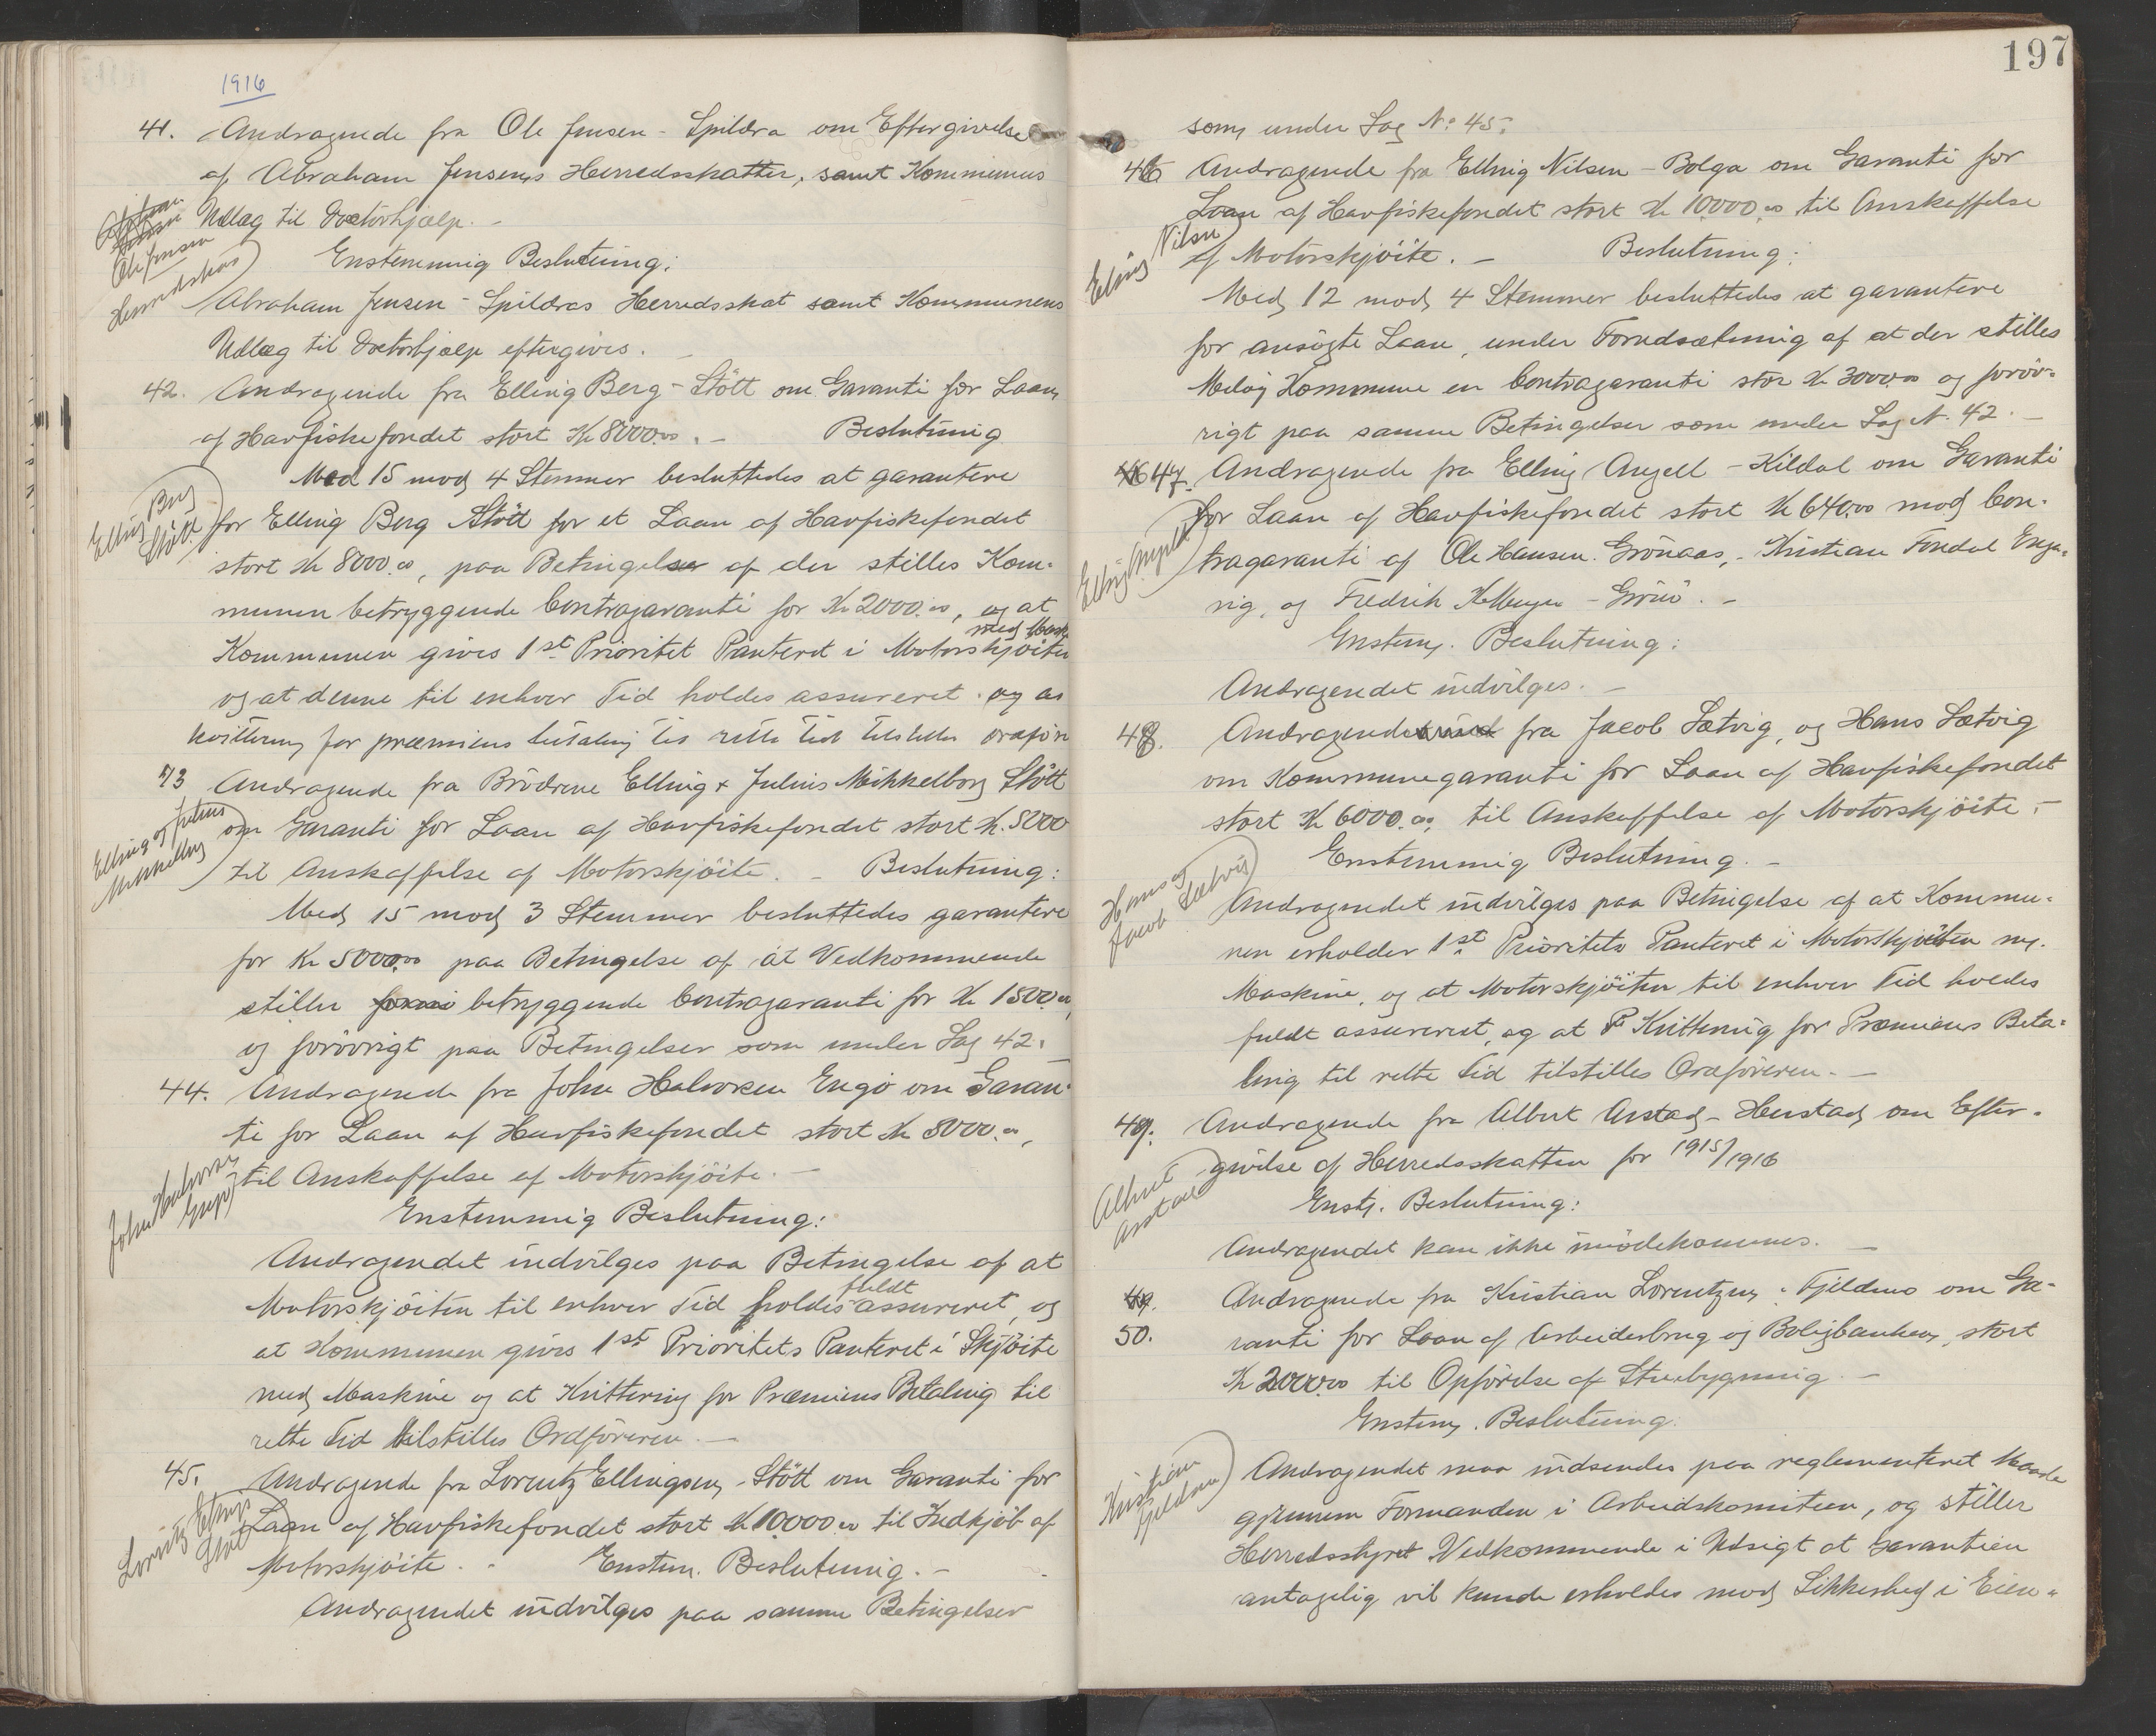 1916
41. Andragende fra Ole Jensen - Spildra om Eftergivelse
af Abraham Jensens Herredsskatter, samt Kommunens
Udlæg til Doctorhjælp. -
Ole Jensen
Herredsskat
Enstemmig Beslutning:
Abraham Jensen - Spildras Herredsskat samt Kommunens
Udlæg til Doctorhjælp eftergives. -
42. Andragende fra Elling Berg - Stött om Garanti for Laan
af Havfiskefondet stort Kr 8000.00. - Beslutning
Med 15 mod 4 Stemmer besluttedes at garantere
Elling Berg
Stött
for Elling Berg Stött for et Laan af Havfiskefondet
stort Kr 8000.00, paa Betingelser af der stilles Kom-
munen betryggende Contragaranti for Kr 2000.00, og at
med Mask
Kommunen gives 1st Prioritet Panteret i Motorskjöiten
og at denne til enhver Tid holdes assureret. og at
kvittering for præmiens betaling til rette tid tilstilles ordför
43 Andragende fra Brödrene Elling & Julius Mikkelborg Stött
Elling og Julius
Mikkelborg
om Garanti for Laan af Havfiskefondet stort Kr. 5000
til Anskaffelse af Motorskjöite. - Beslutning:
Med 15 mod 3 Stemmer besluttedes garantere
for Kr 5000.00 paa Betingelse af at Vedkommende
stiller betryggende Contragaranti for Kr 1500.00,
og forövrigt paa Betingelser som under Sag 42. -
44. Andragende fra John Halvorsen Engö om Garan-
ti for Laan af Havfiskefondet stort Kr 8000.00,
John Halvorsen
Engö
til Anskaffelse af Motorskjöite. -
Enstemmig Beslutning:
Andragendet indvilges paa Betingelse af at
fuldt
Motorskjöiten til enhver Tid holdes assureret, og
at Kommunen givis 1st Prioritets Panteret i Skjöite
med Maskine og at Kvittering for Præmiens Betaling til
rette Tid tilstilles Ordföreren. -
45. Andragende fra Lorentz Ellingsen - Stött om Garanti for
Lorentz Ellings
Stött
Laan af Havfiskefondet stort Kr 10000.00 til Indkjöb af
Motorskjöite. - Enstem. Beslutning. -
Andragendet indvilges paa samme Betingelser
197
som under Sag No 45.
46 Andragende fra Elling Nilsen - Bolga om Garanti for
Laan af Havfiskefondet stort Kr 10000.00 til Anskaffelse
Elling Nilsen
af Motorskjöite. - Beslutning:
Med 12 mod 4 Stemmer besluttedes at garantere
for ansögte Laan, under Forudsætning af at der stilles
Melöy Kommune en Contragaranti stor Kr 3000.00 og foröv-
rigt paa samme Betingelser som under Sag N. 42. -
47. Andragende fra Elling Angell - Kildal om Garanti
Elling Angell
for Laan af Havfiskefondet stort Kr 640.00 mod Con-
tragaranti af Ole Hansen Grönaas, - Kristian Fondal Enga-
vig, og Fredrik K Meyer - Grönö. -
Enstem. Beslutning:
Andragendet indvilges. -
48. Andragende fra Jacob Sætvig, og Hans Sætvig
om Kommunegaranti for Laan af Havfiskefondet
stort Kr 6000.00, til Anskaffelse af Motorskjöite. -
Enstemmig Beslutning. -
Hans og
Jacob Sætvig
Andragendet indvilges paa Betingelse af at Kommu-
nen erholder 1st Prioritets Panteret i Motorskjöiten m.
Maskine, og at Motorskjöiten til enhver Tid holdes
fuldt assureret, og at Kvittering for Præmiens Beta-
ling til rette Tid tilstilles Ordföreren. -
49. Andragende fra Albert Arstad - Herstad om Efter-
givelse af Herredsskatten for 1915/1916
Albert
Arstad
Enst. Beslutning:
Andragendet kan ikke imödekommes. -
50. Andragende fra Kristian Lorentzen - Fjeldmo om Ga-
ranti for Laan af Arbeiderbrug og Boligbanken, stort
Kr 2000.00 til Opförelse af Stuebygning. -
Enstem. Beslutning.
Kristian
Fjeldmo
Andragendet maa indsendes paa reglementeret Maade
gjennem Formanden i Arbeidskomiteen, og stiller
Herredsstyret Vedkommende i Udsigt at Garantien
antagelig vil kunde erholdes mod Sikkerhed i Eien-